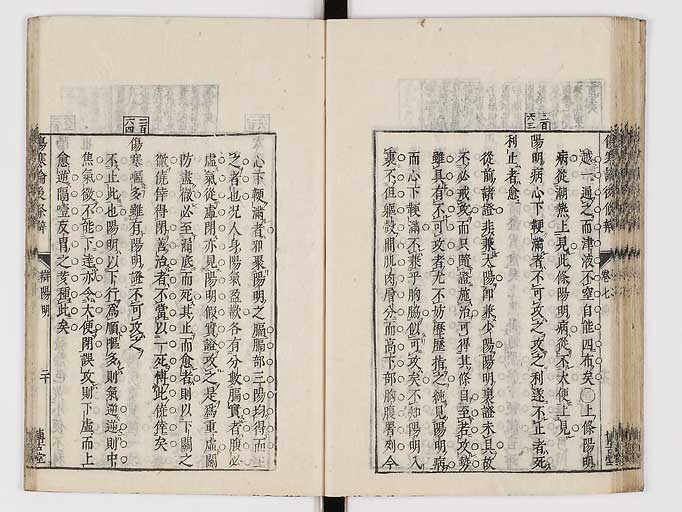 越一通之而津液不窒自能四布矣○上條陽明
病從潮熱上見此條陽明病從不大便上見
三百
六三
陽明病心下鞕滿者不可攻之攻之利遂不止者死
利止者愈
從前諸證非兼太陽卽兼少陽陽明裏證未具故
不必戒攻而只隨證施治可得其條自至若攻勢
雖具有不可攻者尤不妨歷歷指之純見陽明病
而心下鞕滿不兼乎胸脇似可攻矣不知陽明入
裏不但軀殼間肌肉層分而高下部胸腹界列今
傷寒論後條辨
卷七
博古堂
心下鞕滿者邪聚陽明之膈膈部三陽均得而主
之者也況人身陽氣盈歉各有分數膈實者腹必
虛氣從虛閉亦見陽明假實證攻之是爲重虛關
防盡徹必至漏底而死其止而愈者則以下關之
徹僥倖得閉而善治者不當以一死博此僥倖矣
三百
六四
傷寒嘔多雖有陽明證不可攻之
不止此也陽明以下行爲順嘔多則氣逆逆則中
焦氣徹不能下達亦令大便閉誤攻則下虛而上
愈逆膈噎反胃之茇種此矣
傷寒論後條辨
辨陽明
二十
博古堂